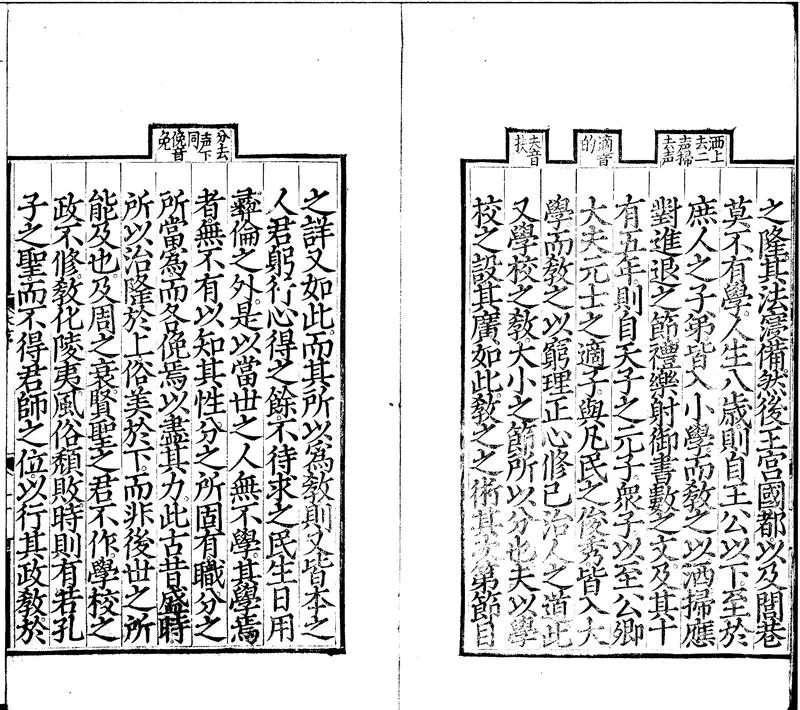 洒上
去二
声掃
去声
適音
的
夫音
扶
之隆其法寖備然後王宮國都以及閭巷
莫不有學人生八歳則自王公以下至於
庶人之子弟皆入小學而敎之以洒掃應
對進退之節禮樂射御書數之文及其十
有五年則自天子之元子衆子以至公卿
大夫元士之適子與凡民之俊秀皆入大
學而敎之以窮理正心修己治人之道此
又學校之敎大小之節所以分也夫以學
校之設其廣如此敎之之術其次第節目
分去
声下
同
俛音
免
之詳又如此而其所以爲敎則又皆本之
人君躬行心得之餘不待求之民生日用
彝倫之外是以當世之人無不學其學焉
者無不有以知其性分之所固有職分之
所當爲而各俛焉以盡其力此古昔盛時
所以治隆於上俗美於下而非後世之所
能及也及周之衰賢聖之君不作學校之
政不修敎化陵夷風俗頽敗時則有若孔
子之聖而不得君師之位以行其政敎於